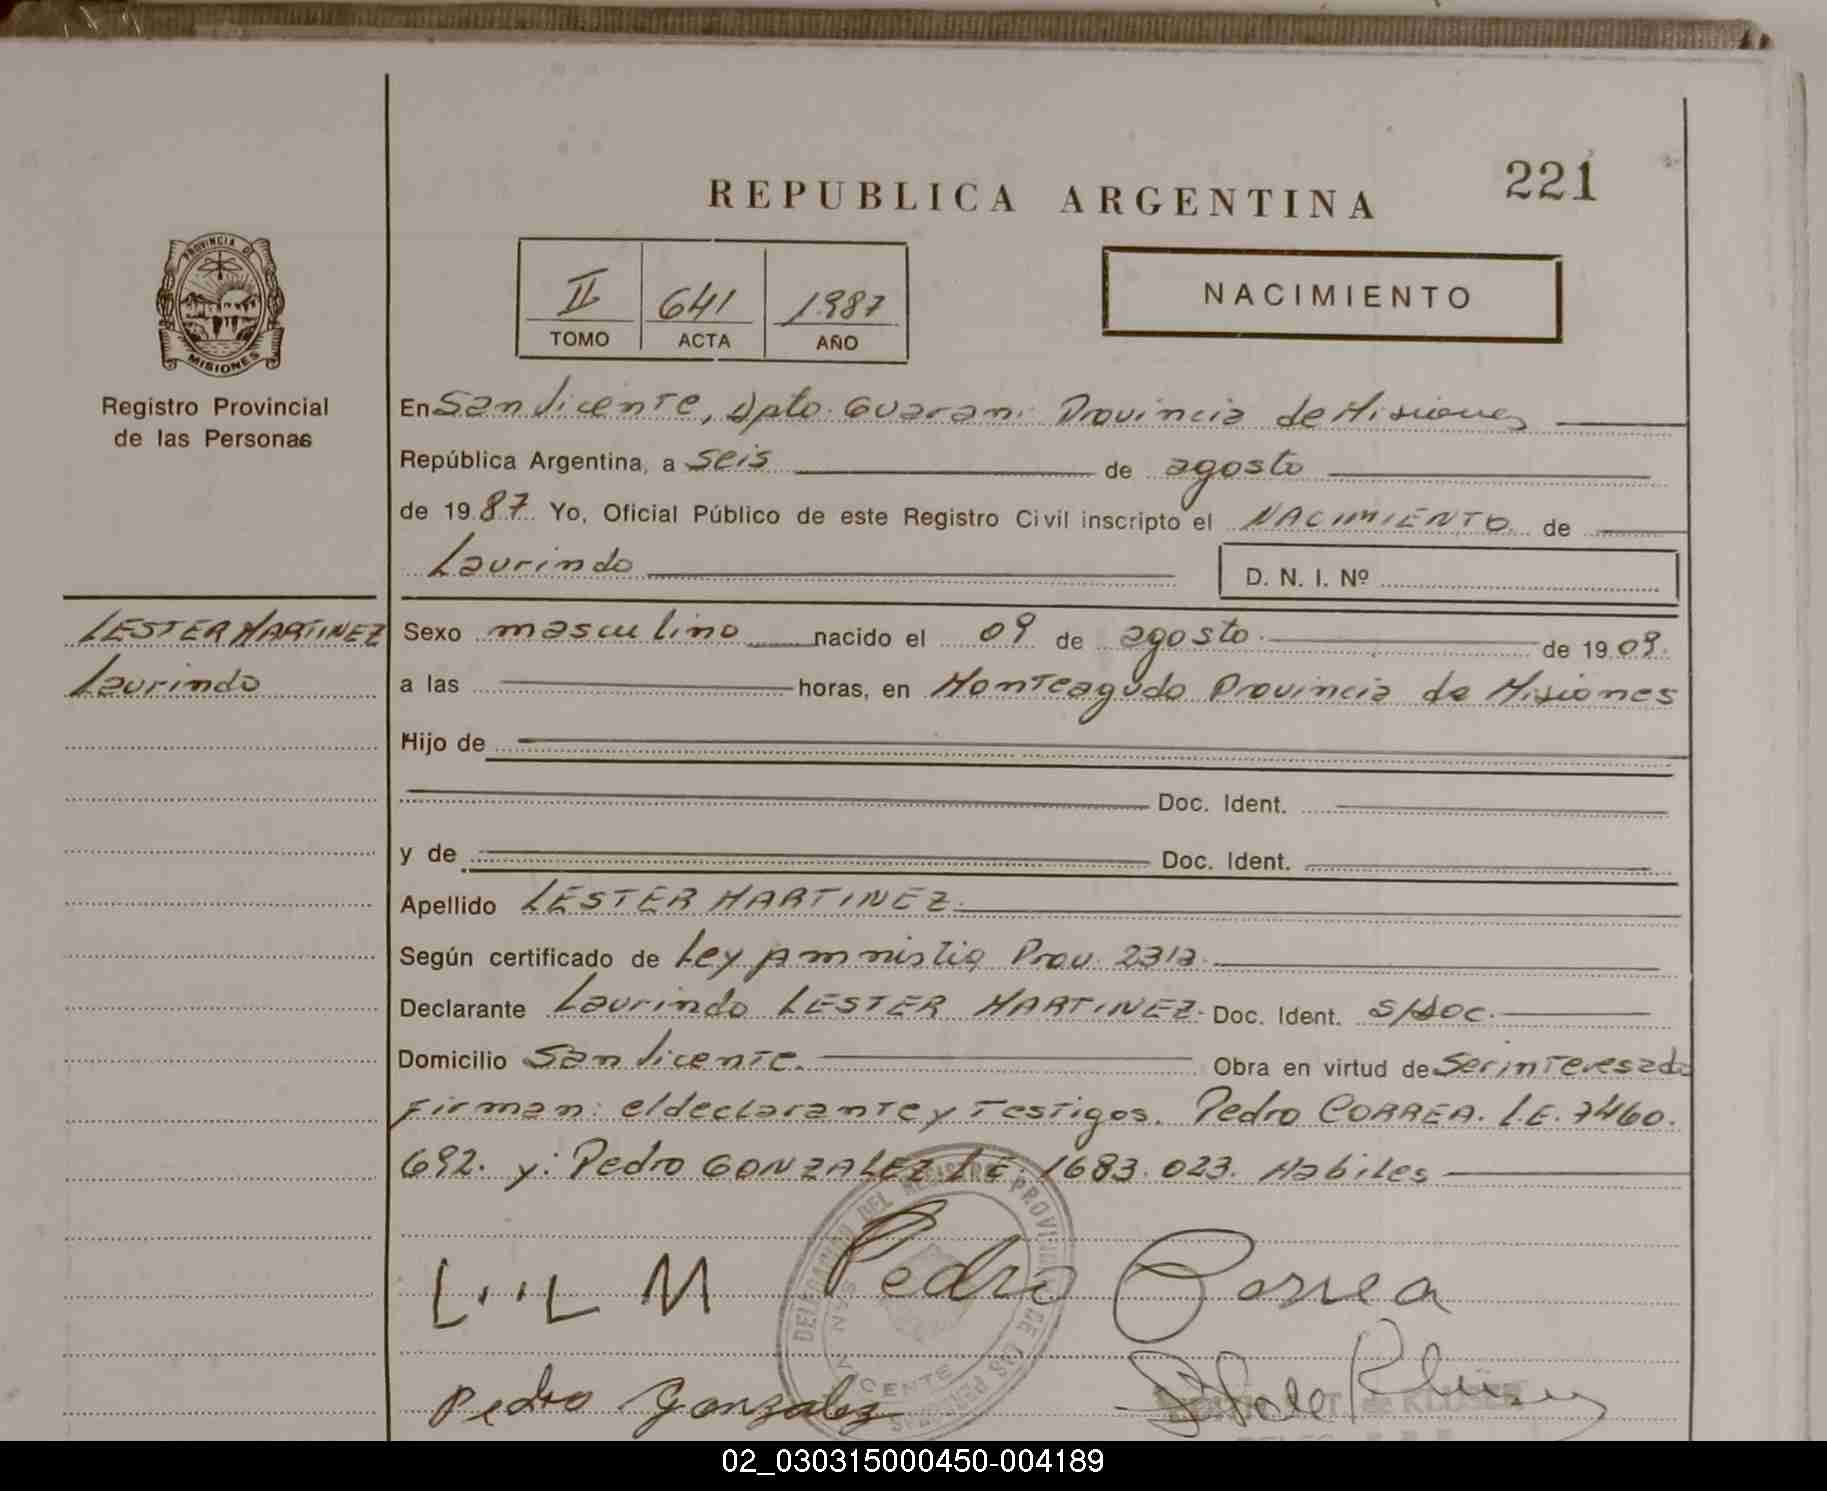 221
REPUBLICA ARGENTINA
PROVINCIA DE
MISIONES
Registro Provincial
de las Personas
II 641 1987
TOMO ACTA AÑO
NACIMIENTO
En San Vicente, Dpto. Guarani Provincia de Misiones
República Argentina, a seis de agosto
de 1987. Yo, Oficial Público de este Registro Civil inscripto el NACIMIENTO de
Laurindo
D. N. I. Nº
LESTER MARTINEZ
Laurindo
Sexo masculino nacido el 09 de agosto de 1909.
a las horas, en Monteagudo Provincia de Misiones
Hijo de
Doc. Ident.
y de Doc. Ident.
Apellido LESTER MARTINEZ.
Según certificado de Ley Amnistia Prov.
Declarante Laurindo LESTER MARTINEZ. Doc. Ident. S/DOC.
Domicilio San Vicente. Obra en virtud de Ser interesado
Firman: el declarante y Testigos. Pedro CORREA. L.E. 7460.
692. y: Pedro GONZALEZ L.E. 1683.023. Habiles
L..L M Pedro Correa
Pedro Gonzalez
DELEGACION DEL REGISTRO PROVINCIAL DE LAS PERSONAS
SAN VICENTE
T. de KLUSE
02_030315000450-004189